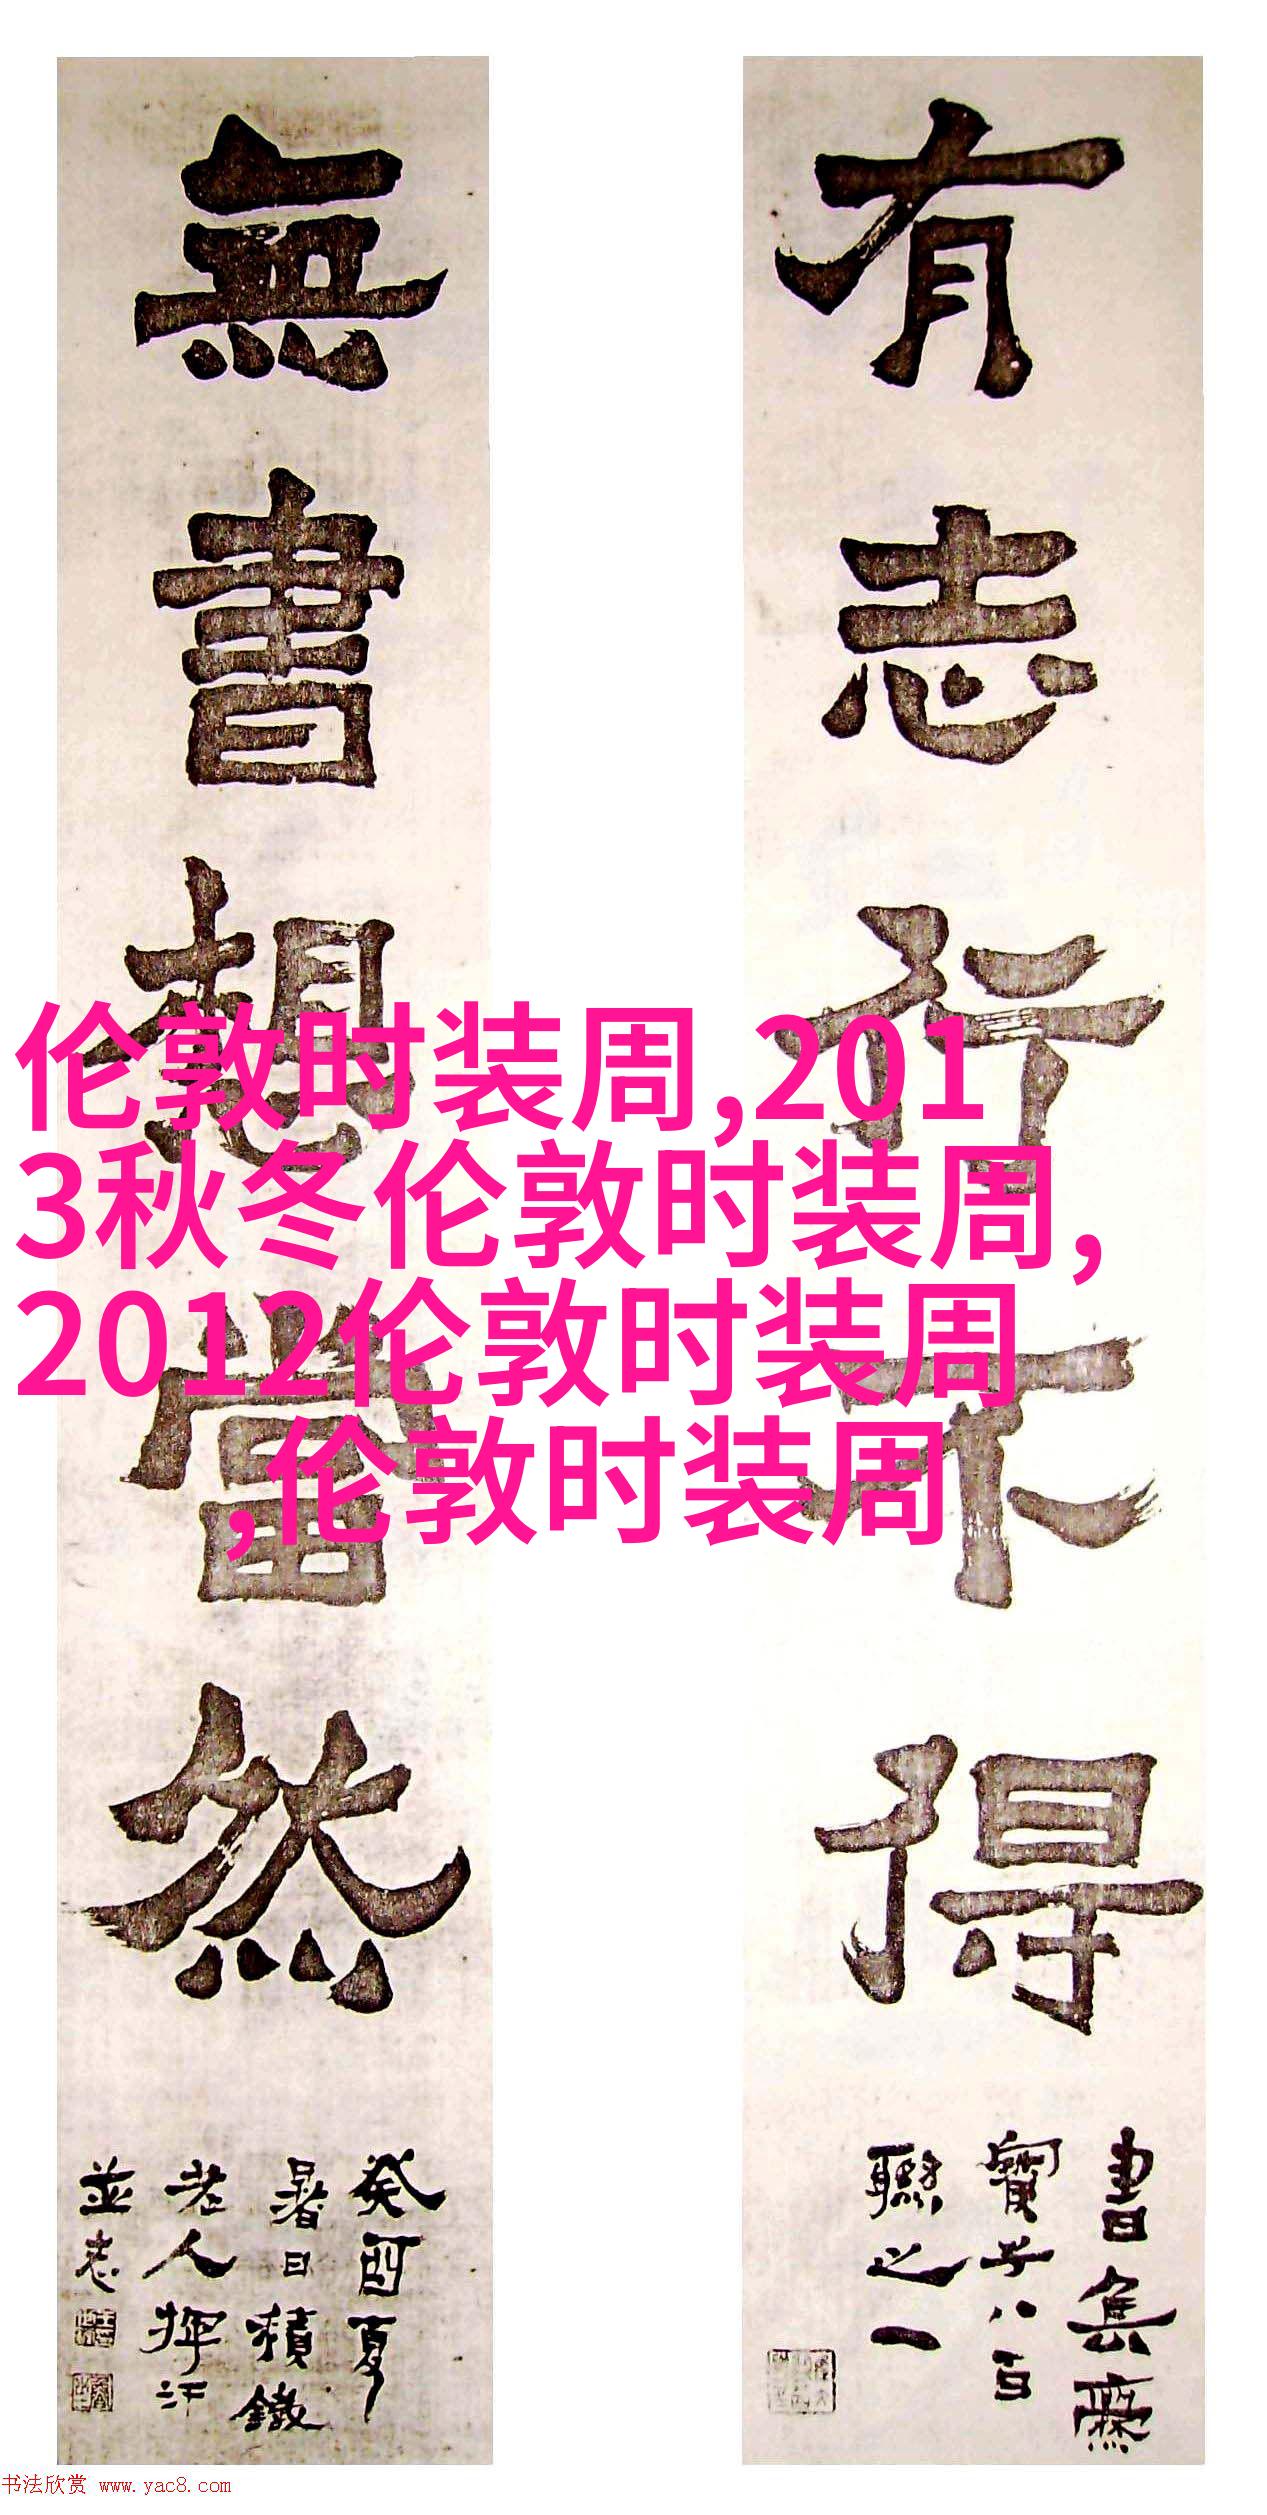 有志行不得
書集爨
寶子八百
聯之一
無書想當然
癸酉夏
暑日積鐵
老人揮汗
並志
伦敦时装周,201
3秋冬伦敦时装周,
2012伦敦时装周
,伦敦时装周
书法欣赏 www.yac8.com